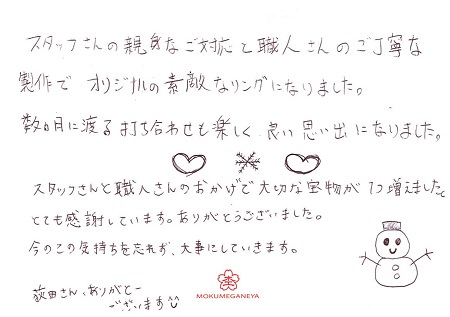 スタッフさんの親身なご対応と職人さんのご丁寧な
製作で オリジナルの素敵なリングになりました。
数ヵ月に渡る打ち合わせも楽しく良い思い出になりました。
スタッフさんと職人さんのおかげで大切な宝物が1つ増えました。
とても感謝しています。ありがとうございました。
今のこの気持ちを忘れず、大事にしていきます。
荻田さん、ありがとー
ございます
MOKUMEGANEYA